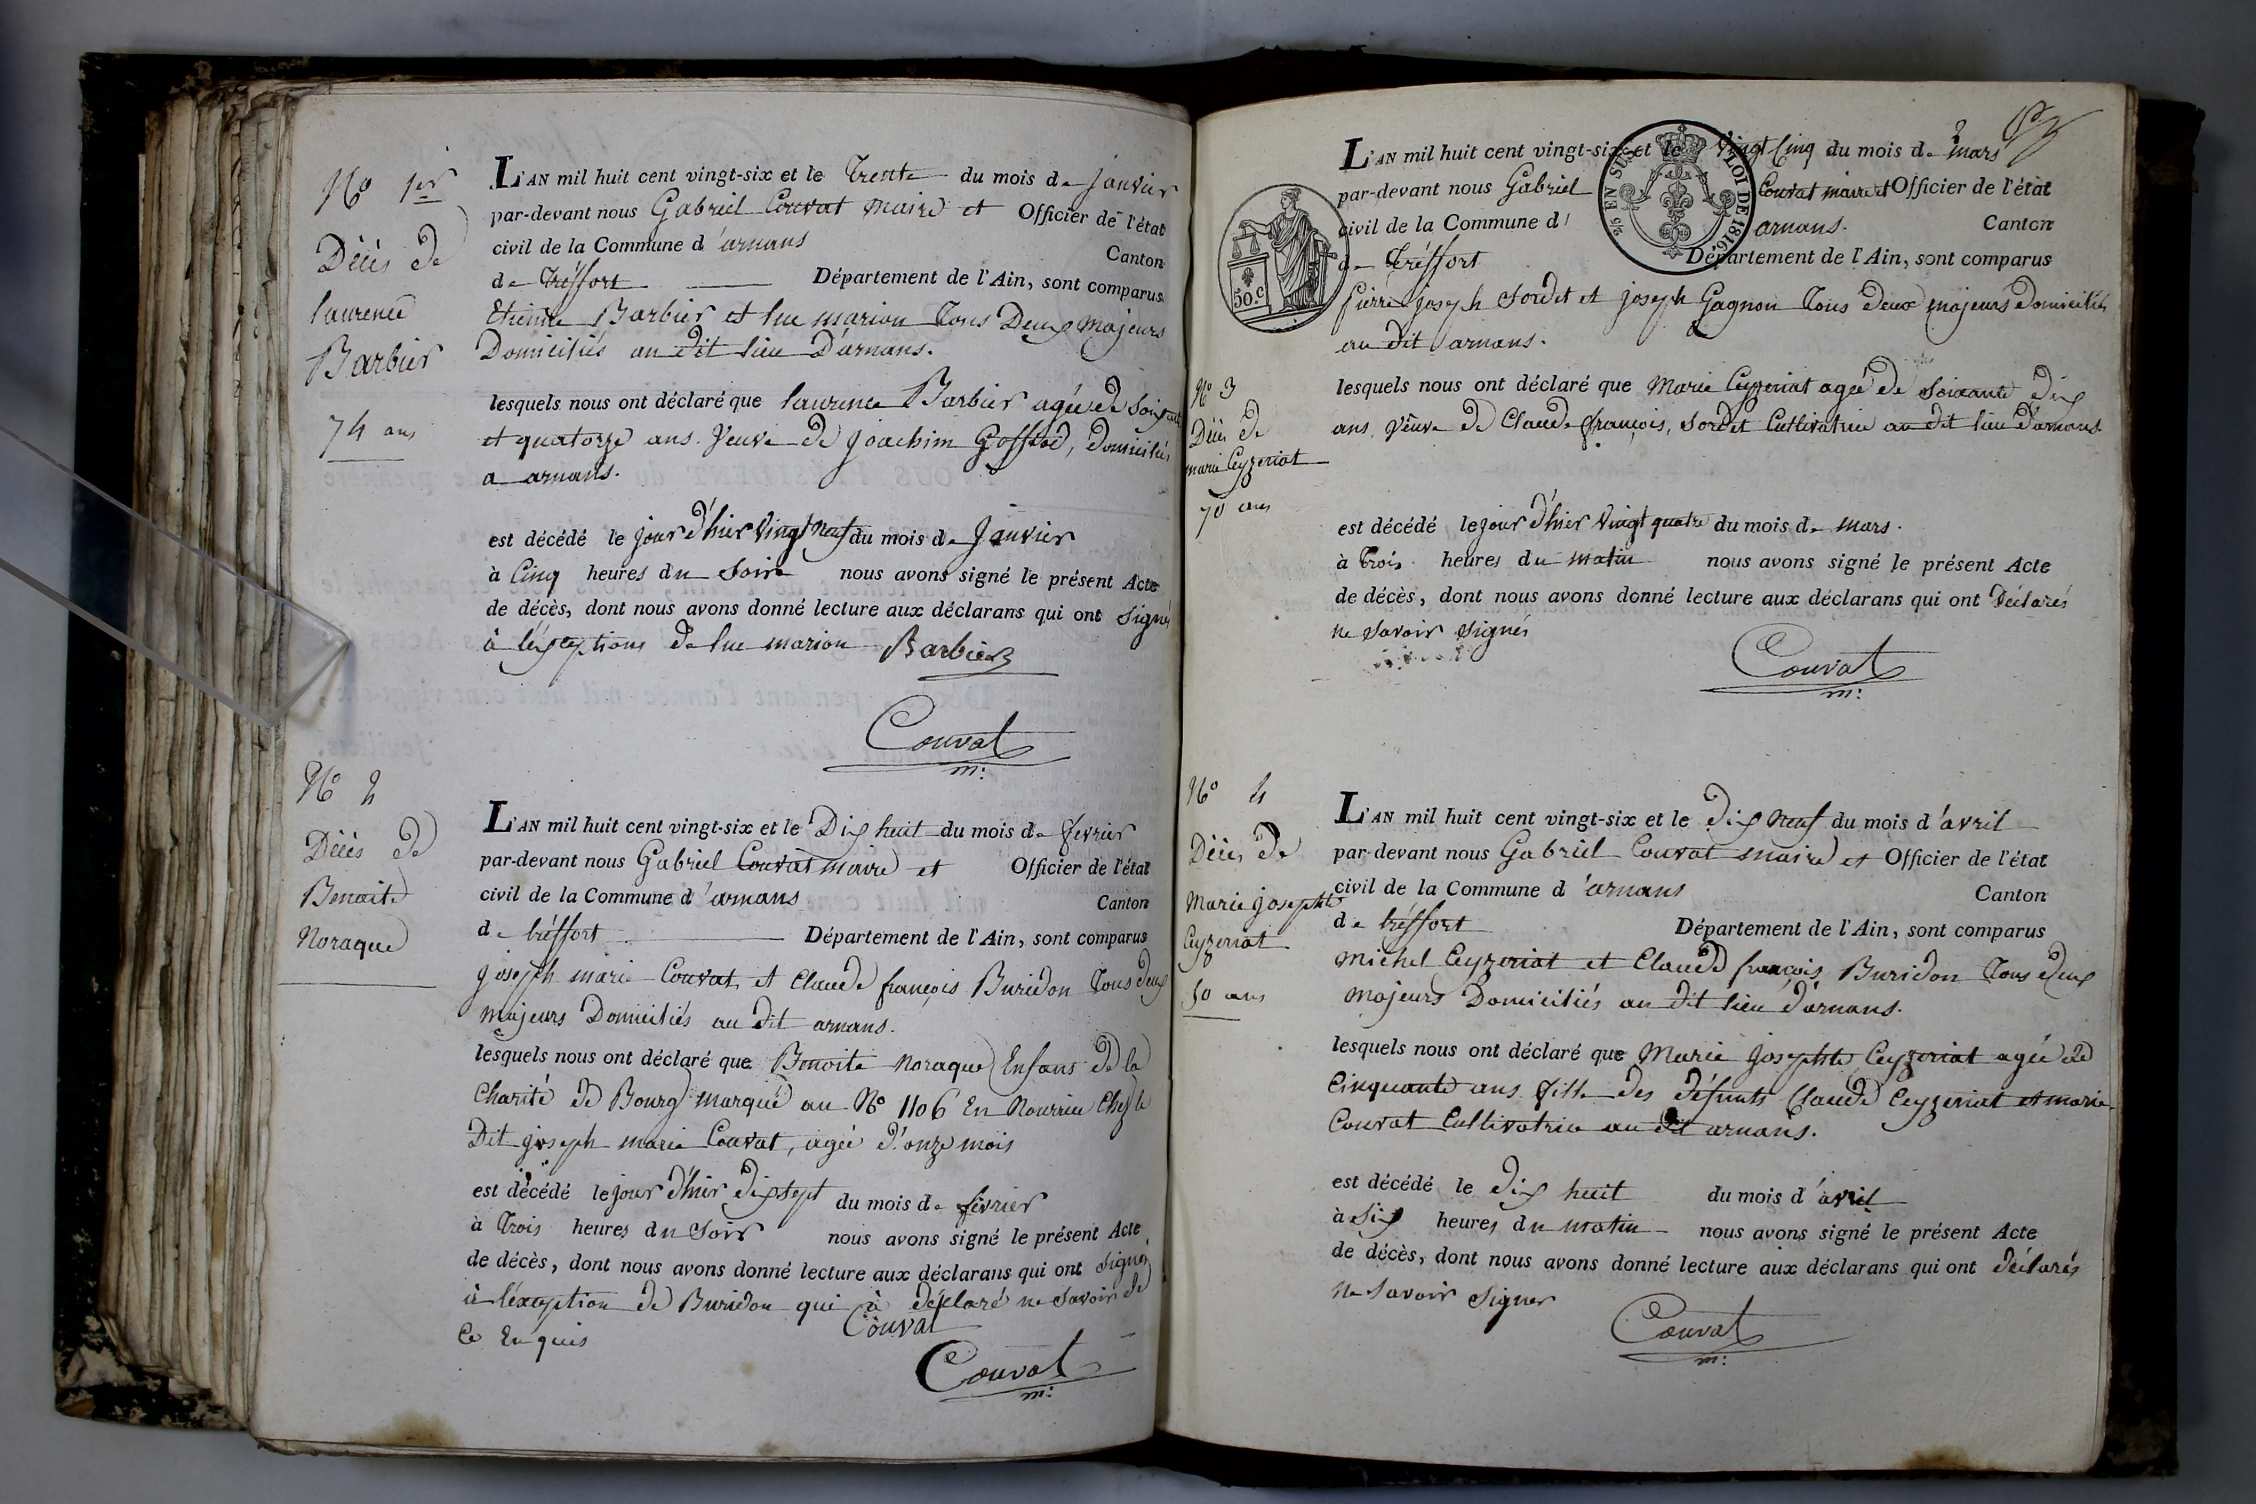 No 1er
Décés de
laurence
Barbier
74 ans
L'AN mil huit cent vingt-six et le Trente du mois de Janvier
par-devant nous Gabriel Couvat maire et Officier de l'état
civil de la Commune d'arnans Canton
de Tréffort Département de l'Ain, sont comparus
Etienne Barbier et luc marion Tous Deux majeurs
Domiciliés au dit lieu D'arnans.
lesquels nous ont déclaré que laurence Barbier agée de Soixante
et quatorze ans Veuve de Joachim Goffard, Domiciliés
a arnans.
est décédé le jour d'hier Vingt Neuf du mois de Janvier
à Cinq heures du Soire nous avons signé le présent Acte
de décès, dont nous avons donné lecture aux déclarans qui ont Signés
à l'éxceptions de luc marion Barbier
Couvat
m:
No 2
Décés de
Benoite
Noraque
L'AN mil huit cent vingt-six et le Dix huit du mois de fevrier
par-devant nous Gabriel Couvat maire et Officier de l'état
civil de la Commune d'arnans Canton
de tréffort Département de l'Ain, sont comparus
joseph marie Couvat et Claude françois Buridon Tous deux
majeurs Domiciliés au dit arnans.
lesquels nous ont déclaré que Benoite Noraque Enfans de la
Charité de Bourg marqué au No 1106 En Nourrice Chez le
Dit joseph marie Couvat, agée d'onze mois
est décédé le jour d'hier dix sept du mois de fevrier
à Trois heures du Soir nous avons signé le présent Acte
de décès, dont nous avons donné lecture aux déclarans qui ont Signés
à léxception de Buridon qui à déclaré ne Savoir de
Ce Enquis Couvat
Couvat
m:
2
EN SUS
LOI DE 1816.
50.c
No 3
Décés de
marie Ceyzeriat
70 ans
L'AN mil huit cent vingt-six et le Vingt Cinq du mois de mars
par-devant nous Gabriel Couvat maire et Officier de l'état
civil de la Commune d' arnans. Canton
de Tréffort Département de l'Ain, sont comparus
pierre joseph Sordet et joseph Gagnon Tous deux majeurs Domiciliés
au dit arnans.
lesquels nous ont déclaré que Marie Ceyzeriat agée de Soixante dix
ans Veuve de Claude françois, Sordet Cultivatrice au dit lieu d'arnans
est décédé le jour d'hier Vingt quatre du mois de mars.
à Trois heures du matin nous avons signé le présent Acte
de décès, dont nous avons donné lecture aux déclarans qui ont Déclarés
ne Savoir Signés
Couvat
m:
No 4
Décés de
Marie josephte
Ceyzeriat
50 ans
L'AN mil huit cent vingt-six et le dix Neuf du mois d'avril
par-devant nous Gabriel Couvat maire et Officier de l'état
civil de la Commune d'arnans Canton
de tréffort Département de l'Ain, sont comparus
Michel Ceyzeriat et Claude françois Buridon Tous deux
majeurs Domiciliés au dit lieu d'arnans.
lesquels nous ont déclaré que Marie josephte Ceyzeriat agée de
Cinquante ans fille des défunts Claude Ceyzeriat et marie
Couvat Cultivatrice au dit arnans.
est décédé le dix huit du mois d'avril
à Six heures du matin nous avons signé le présent Acte
de décès, dont nous avons donné lecture aux déclarans qui ont déclarés
Ne Savoir Signer
Couvat
m: